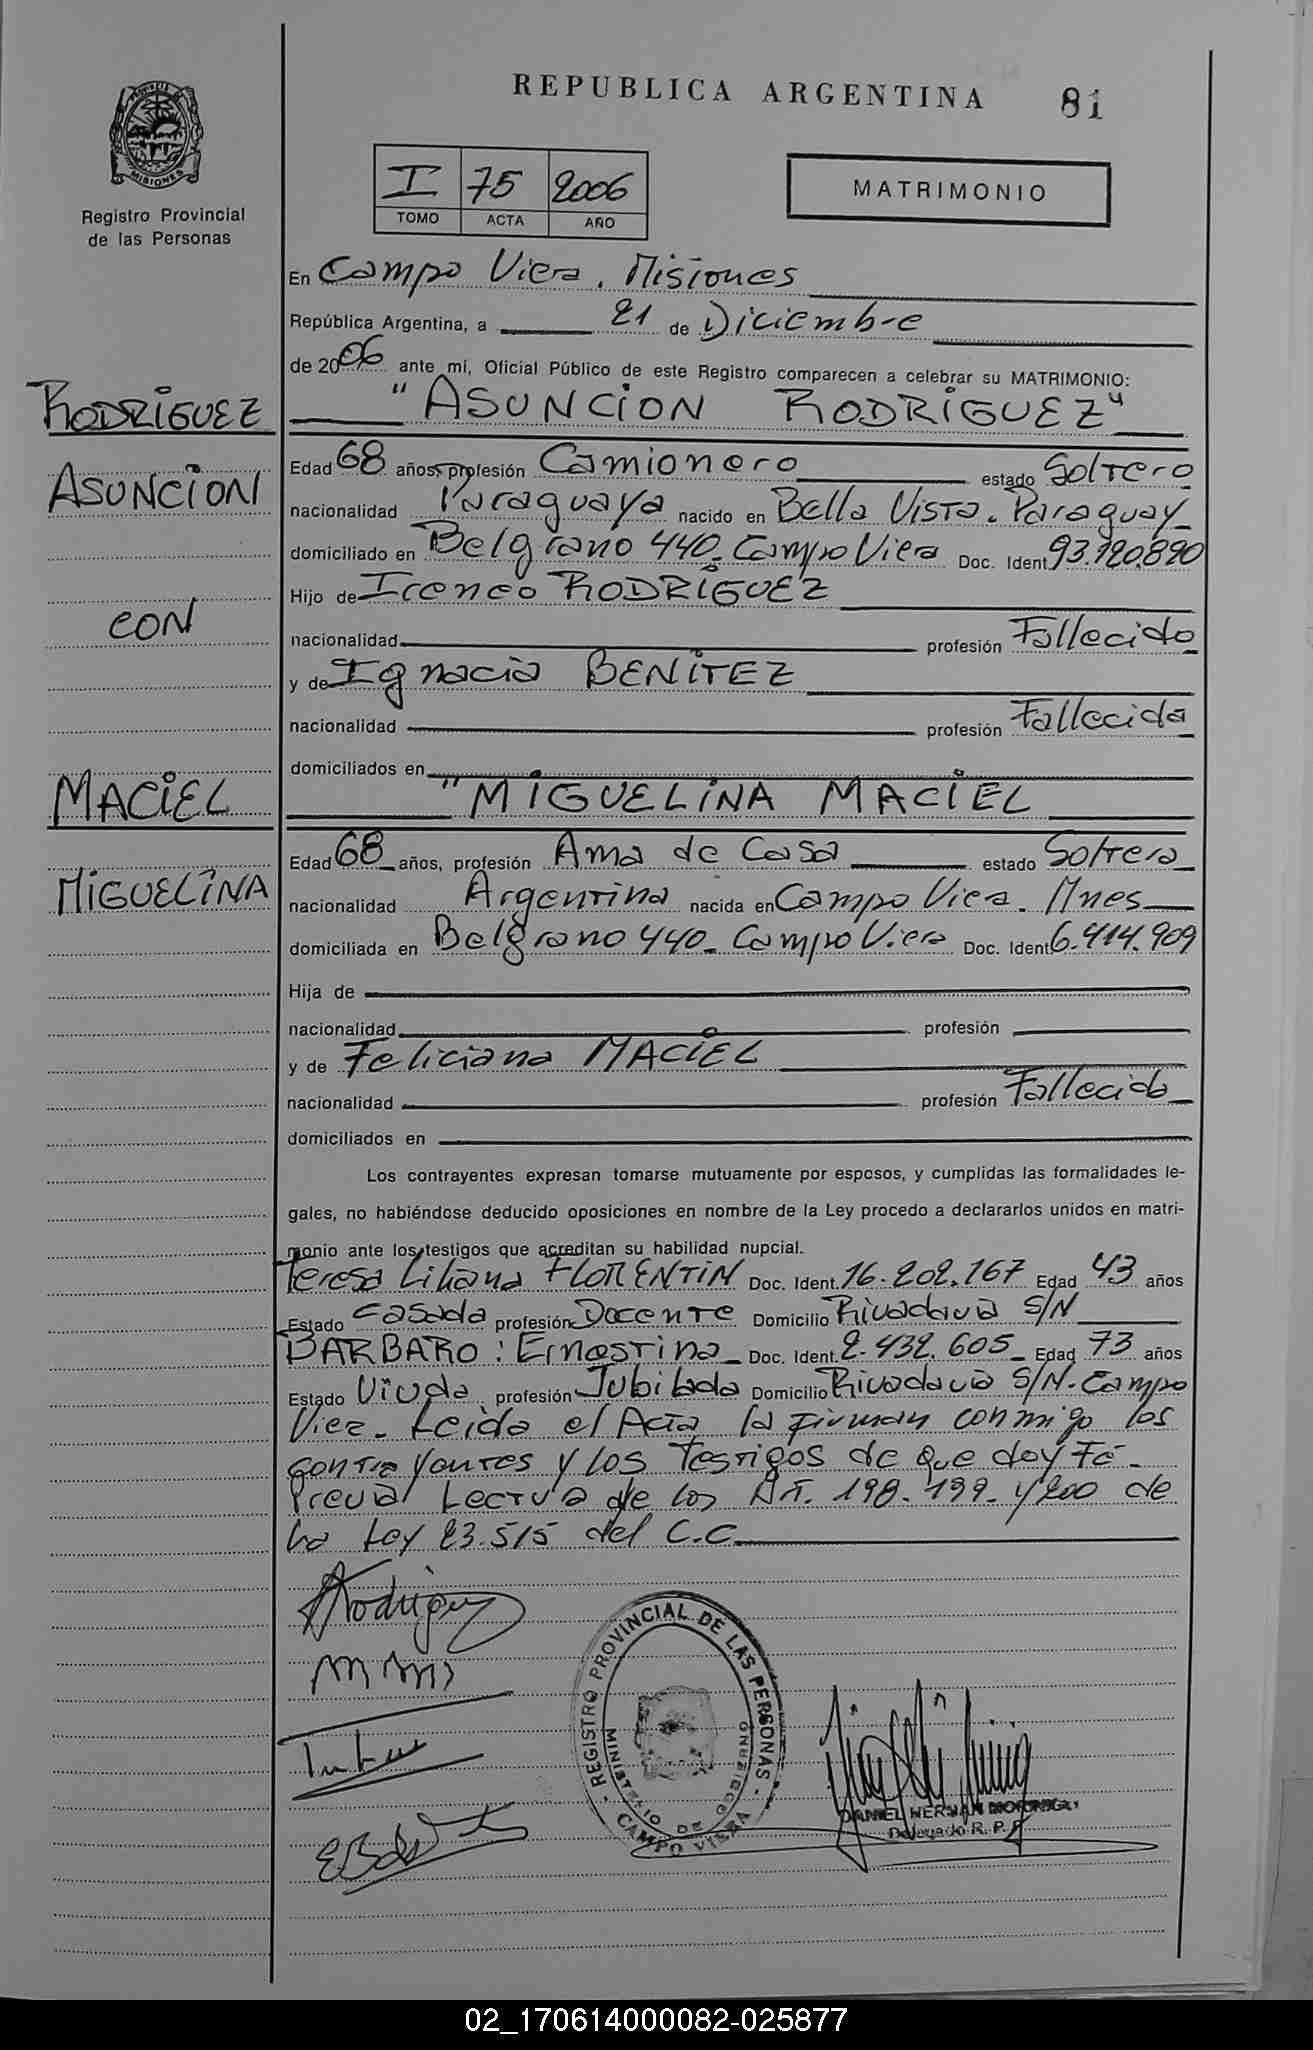 REPUBLICA ARGENTINA 81
PROVINCIA DE
MISIONES
Registro Provincial
de las Personas
I 75 2006
TOMO ACTA AÑO
MATRIMONIO
En Campo Viera. Misiones
República Argentina, a 21 de Diciembre
de 2006 ante mí, Oficial Público de este Registro comparecen a celebrar su MATRIMONIO:
RODRIGUEZ "ASUNCION RODRIGUEZ"
Edad 68 años, profesión Camionero estado Soltero
ASUNCION
nacionalidad Paraguaya nacido en Bella Vista. Paraguay
domiciliado en Belgrano 440. Campo Viera Doc. Ident. 93.120.820
Hijo de Ireneo RODRIGUEZ
CON
nacionalidad profesión Fallecido
y de Ignacia BENITEZ
nacionalidad profesión Fallecida
domiciliados en
MACIEL "MIGUELINA MACIEL
Edad 68 años, profesión Ama de Casa estado Soltera
MIGUELINA
nacionalidad Argentina nacida en Campo Viera. Mnes
domiciliada en Belgrano 440. Campo Viera Doc. Ident. 6.414.909
Hija de
nacionalidad profesión
y de Feliciana MACIEL
nacionalidad profesión Fallecida
domiciliados en
Los contrayentes expresan tomarse mutuamente por esposos, y cumplidas las formalidades le-
gales, no habiéndose deducido oposiciones en nombre de la Ley procedo a declararlos unidos en matri-
monio ante los testigos que acreditan su habilidad nupcial.
Teresa Liliana FLORENTIN Doc. Ident. 16.202.167 Edad 43 años
Estado Casada profesión Docente Domicilio Rivadavia S/N
BARBARO: Ernestina Doc. Ident. 2.432.605 Edad 73 años
Estado Viuda profesión Jubilada Domicilio Rivadavia S/N. Campo
Viera. Leida el Acta la firman conmigo los
contrayentes y los Testigos de que doy Fé.
Previa Lectura de los Art. 198. 199. y 200 de
la Ley 23.515 del C.C.
ARodriguez
REGISTRO PROVINCIAL DE LAS PERSONAS
MINISTERIO DE GOBIERNO
CAMPO VIERA
DANIEL HERNAN
Delegado R. P. P.
02_170614000082-025877